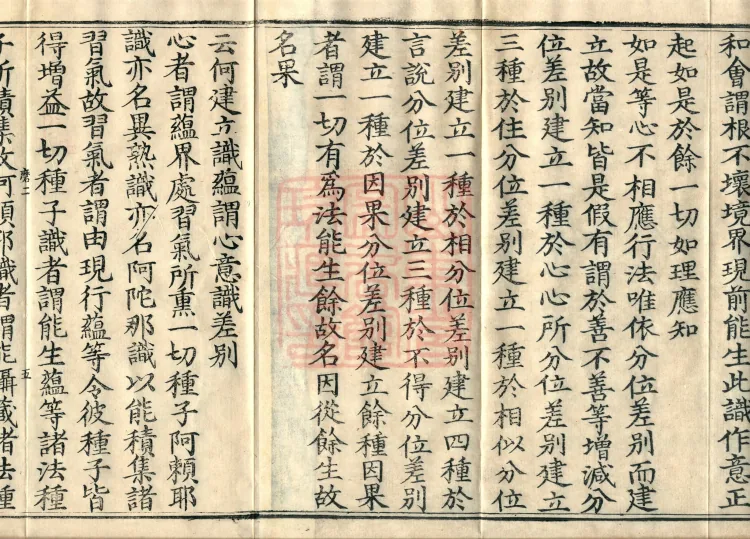 和會謂根不壞境界現前能生此識作意正
起如是於餘一切如理應知
如是等心不相應行法唯依分位差別而建
立故當知皆是假有謂於善不善等增減分
位差別建立一種於心心所分位差別建立
三種於住分位差別建立一種於相似分位
差別建立一種於相分位差別建立四種於
言說分位差別建立三種於不得分位差別
建立一種於因果分位差別建立餘種因果
者謂一切有爲法能生餘故名因從餘生故
名果
云何建立識蘊謂心意識差別
心者謂蘊界處習氣所熏一切種子阿賴耶
識亦名異熟識亦名阿陀那識以能積集諸
習氣故習氣者謂由現行蘊等令彼種子皆
得增益一切種子識者謂能生蘊等諸法種
磨二 五
子所積集故阿賴耶識者謂能攝藏諸法種